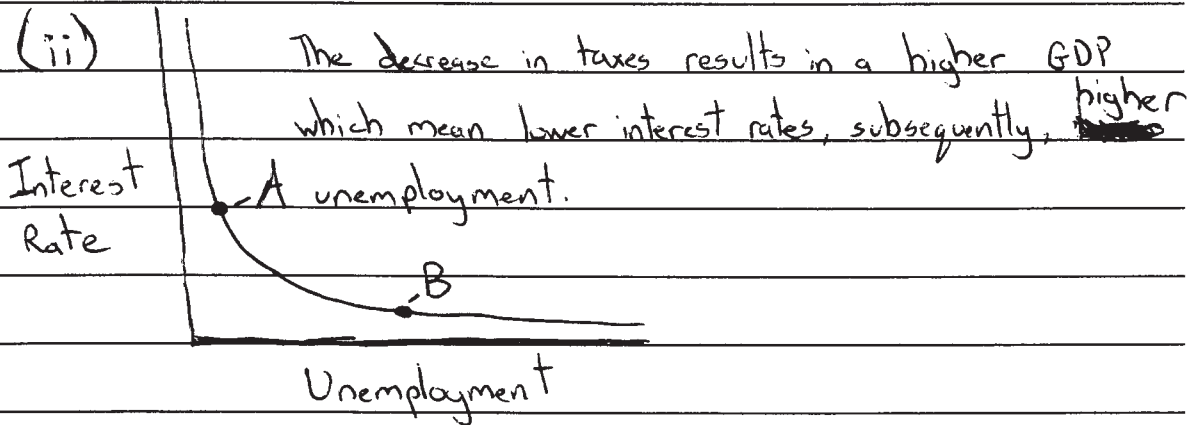 (ii) The decrease in taxes results in a higher GDP
which mean lower interest rates, subsequently, higher
Interest A unemployment.
Rate
B
Unemployment